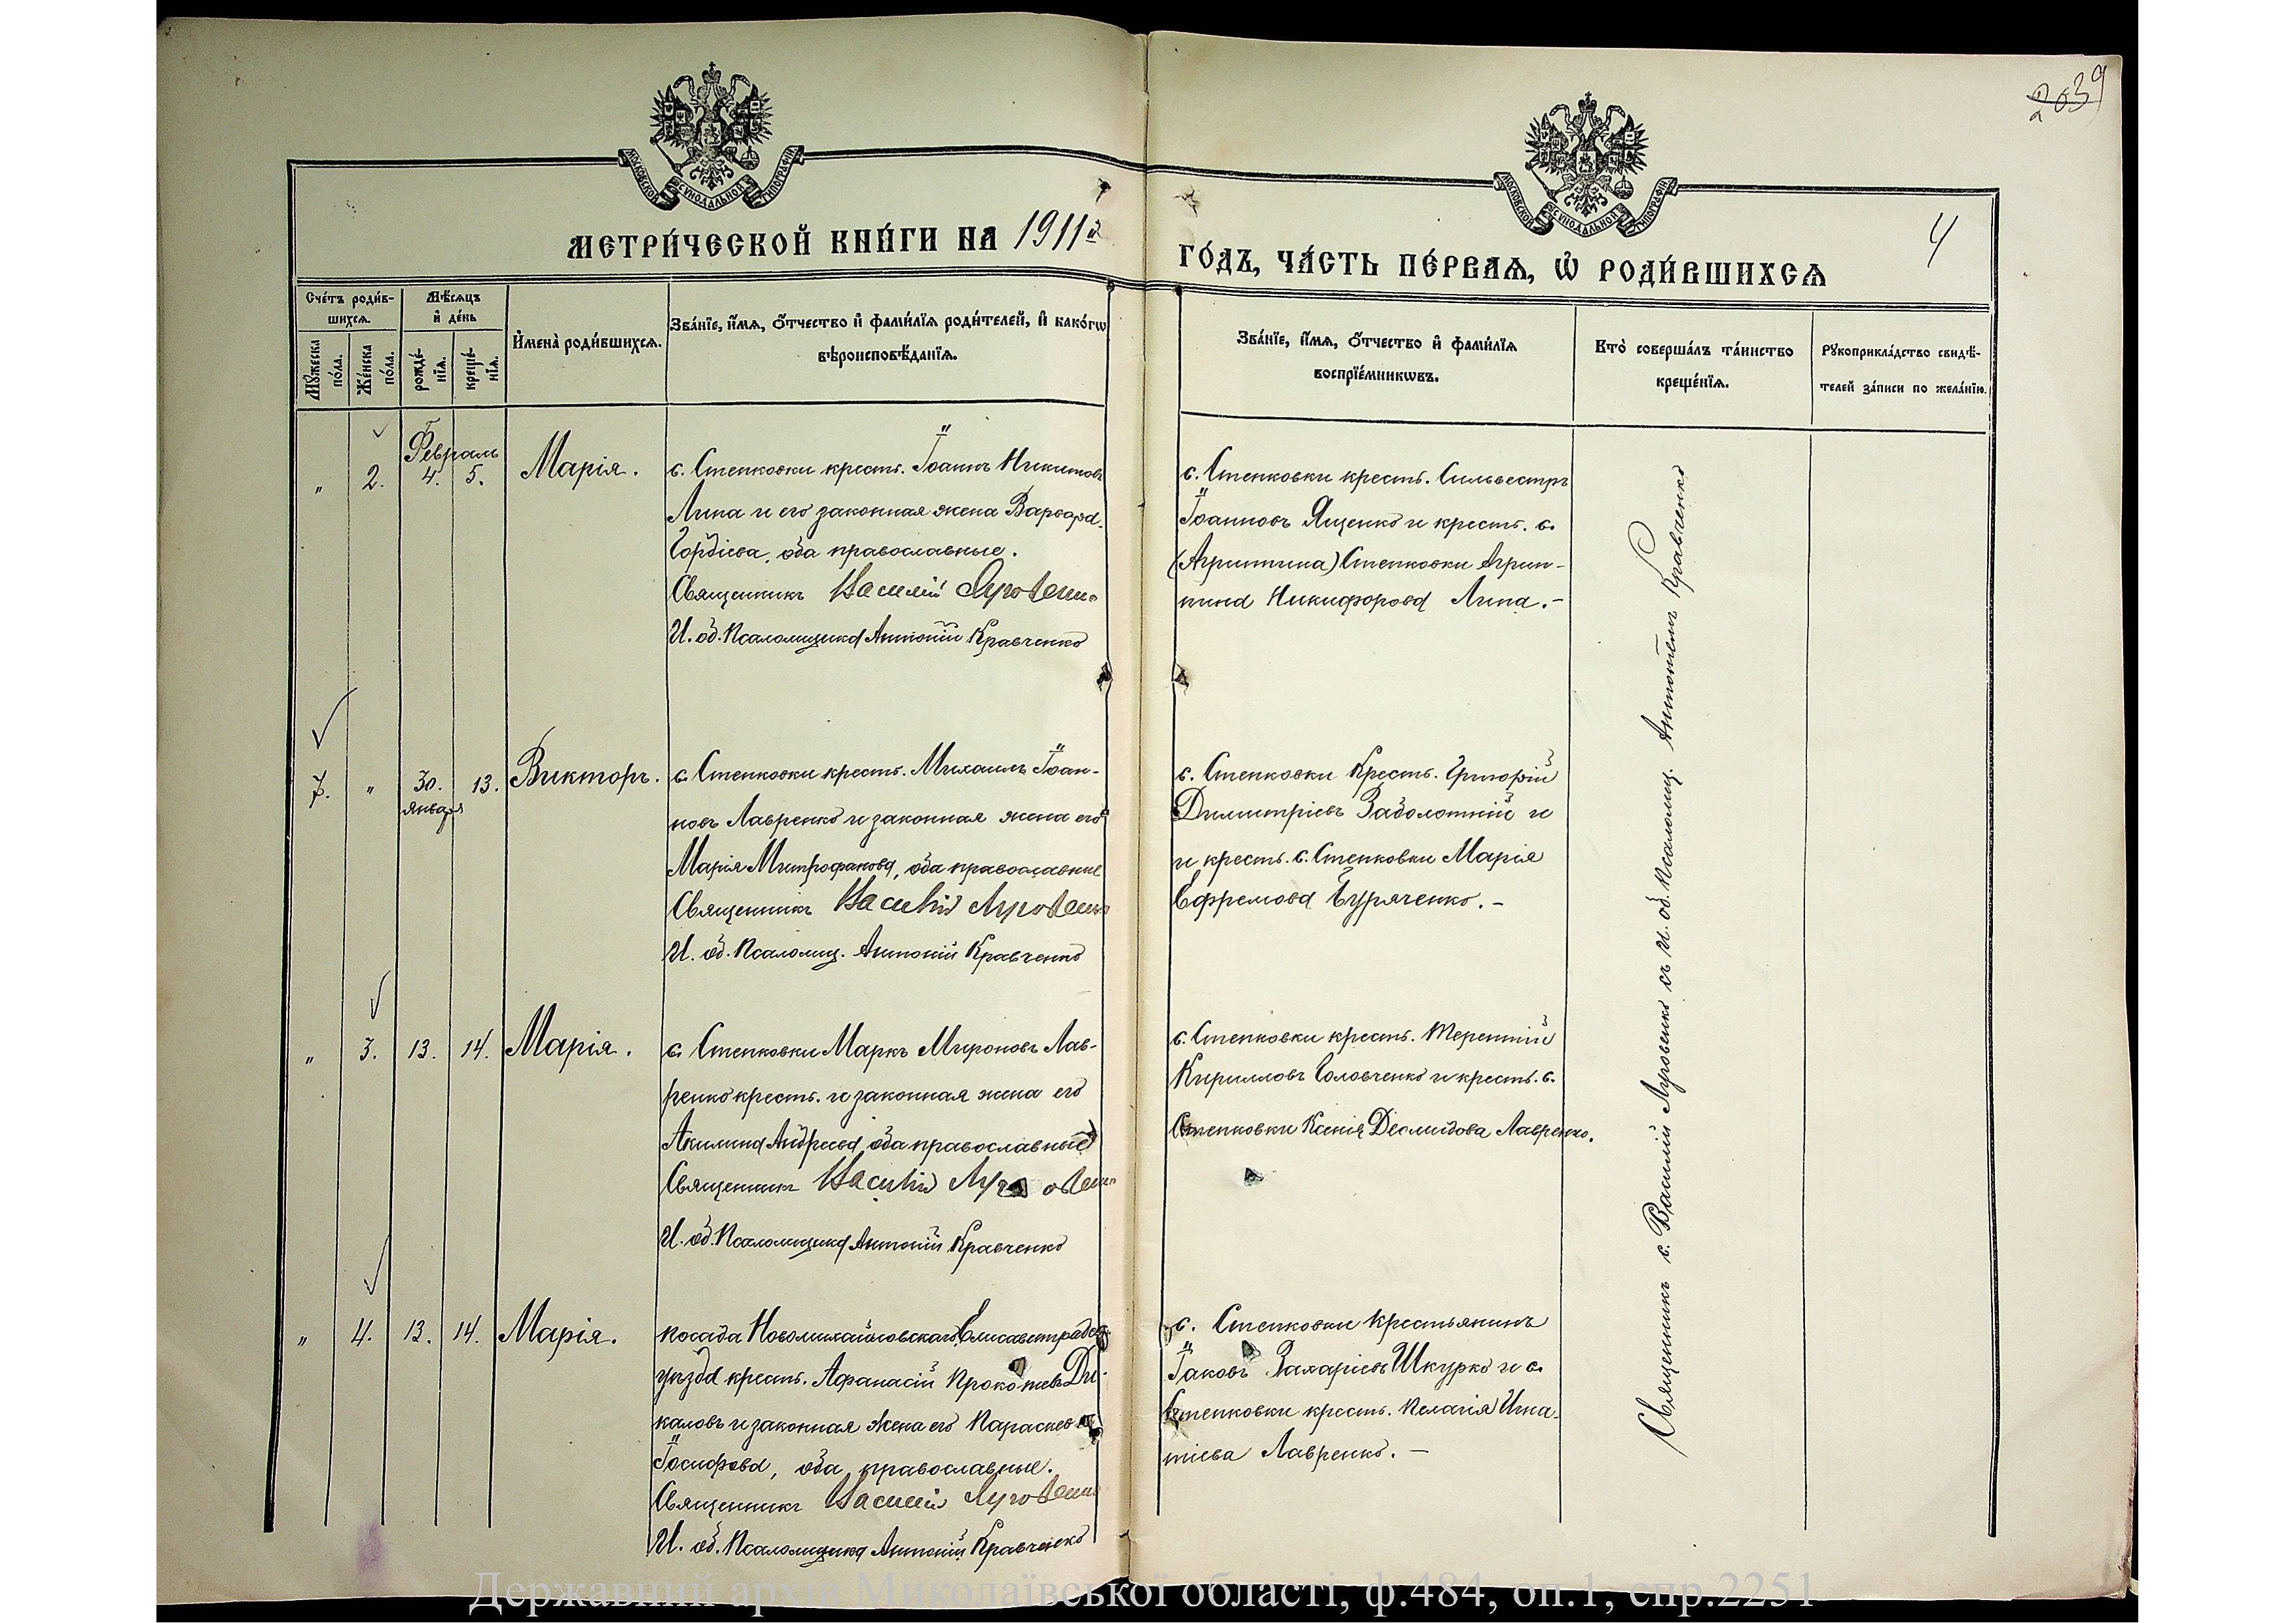 2039
МОСКОВСКОЙ СѴНОДАЛЬНОЙ ТИПОГРАФІИ
МОСКОВСКОЙ СѴНОДАЛЬНОЙ ТИПОГРАФІИ
МЕТРИ́ЧЕСКОЙ КНИ́ГИ НА 1911й
ГО́ДЪ, ЧА́СТЬ ПЕ́РВАѦ, Ѡ҆ РОДИ́ВШИХСѦ
4
Сче́тъ роди́в-
шихсѧ.
Мѣ́сѧцъ
и҆ де́нь
Мꙋ́жеска
по́ла.
Же́нска
по́ла.
рожде́-
нїѧ.
креще́-
нїѧ.
И҆мена̀ роди́вшихсѧ.
Зва́нїе, и҆́мѧ, ѻ҆́тчество и҆ фами́лїѧ роди́телей, и҆ како́гѡ
вѣроисповѣ́данїѧ.
Зва́нїе, и҆́мѧ, ѻ҆́тчество и҆ фами́лїѧ
воспрїе́мникѡвъ.
Кто̀ соверша́лъ та́инство
креще́нїѧ.
Рꙋкоприкла́дство свидѣ́-
телей за́писи по жела́нїю.
Февраль
" 2. 4. 5. Марія.
с. Степковки крест. Іоаннъ Никитовъ
Липа и его законная жена Варвара
Гордіева, оба православные.
Священникъ Василій Луговенко
И. об. Псаломщика Антоній Кравченко
с. Степковки крест. Сильвестръ
Іоанновъ Ященко и крест. с.
(Агриппина) Степковки Агрип-
пина Никифорова Липа.-
7. " 30. 13. Викторъ.
января
с. Степковки крест. Михаилъ Іоан-
новъ Лавренко и законная жена его
Марія Митрофанова, оба православные
Священникъ Василій Луговенко
И. об. Псаломщ. Антоній Кравченко
с. Степковки Крест. Григорій
Димитріевъ Заболотній и
и крест. с. Степковки Марія
Ефремова Буряченко.-
" 3. 13. 14. Марія.
с. Степковки Маркъ Мироновъ Лав-
ренко крест. и законная жена его
Акилина Андреева оба православные
Священникъ Василій Луговенко
И. об. Псаломщика Антоній Кравченко
с. Степковки крест. Терентій
Кирилловъ Головченко и крест. с.
Степковки Ксенія Діомидова Лавренко.
" 4. 13. 14. Марія.
посада Новомихайловскаго Елисаветградск.
уѣзда крест. Афанасій Прокопіевъ Ди-
каловъ и законная жена его Параскева
Іосифова, оба православные.
Священникъ Василій Луговенко
И. об. Псаломщика Антоній Кравченко
с. Степковки Крестьянинъ
Іаковъ Захаріевъ Шкурко и с.
Степковки крест. Пелагія Игна-
тіева Лавренко.-
Священникъ с. Василій Луговенко съ И. об. Псаломщ. Антоніемъ Кравченко
Державний архів Миколаївської області, ф.484, оп.1, спр.2251